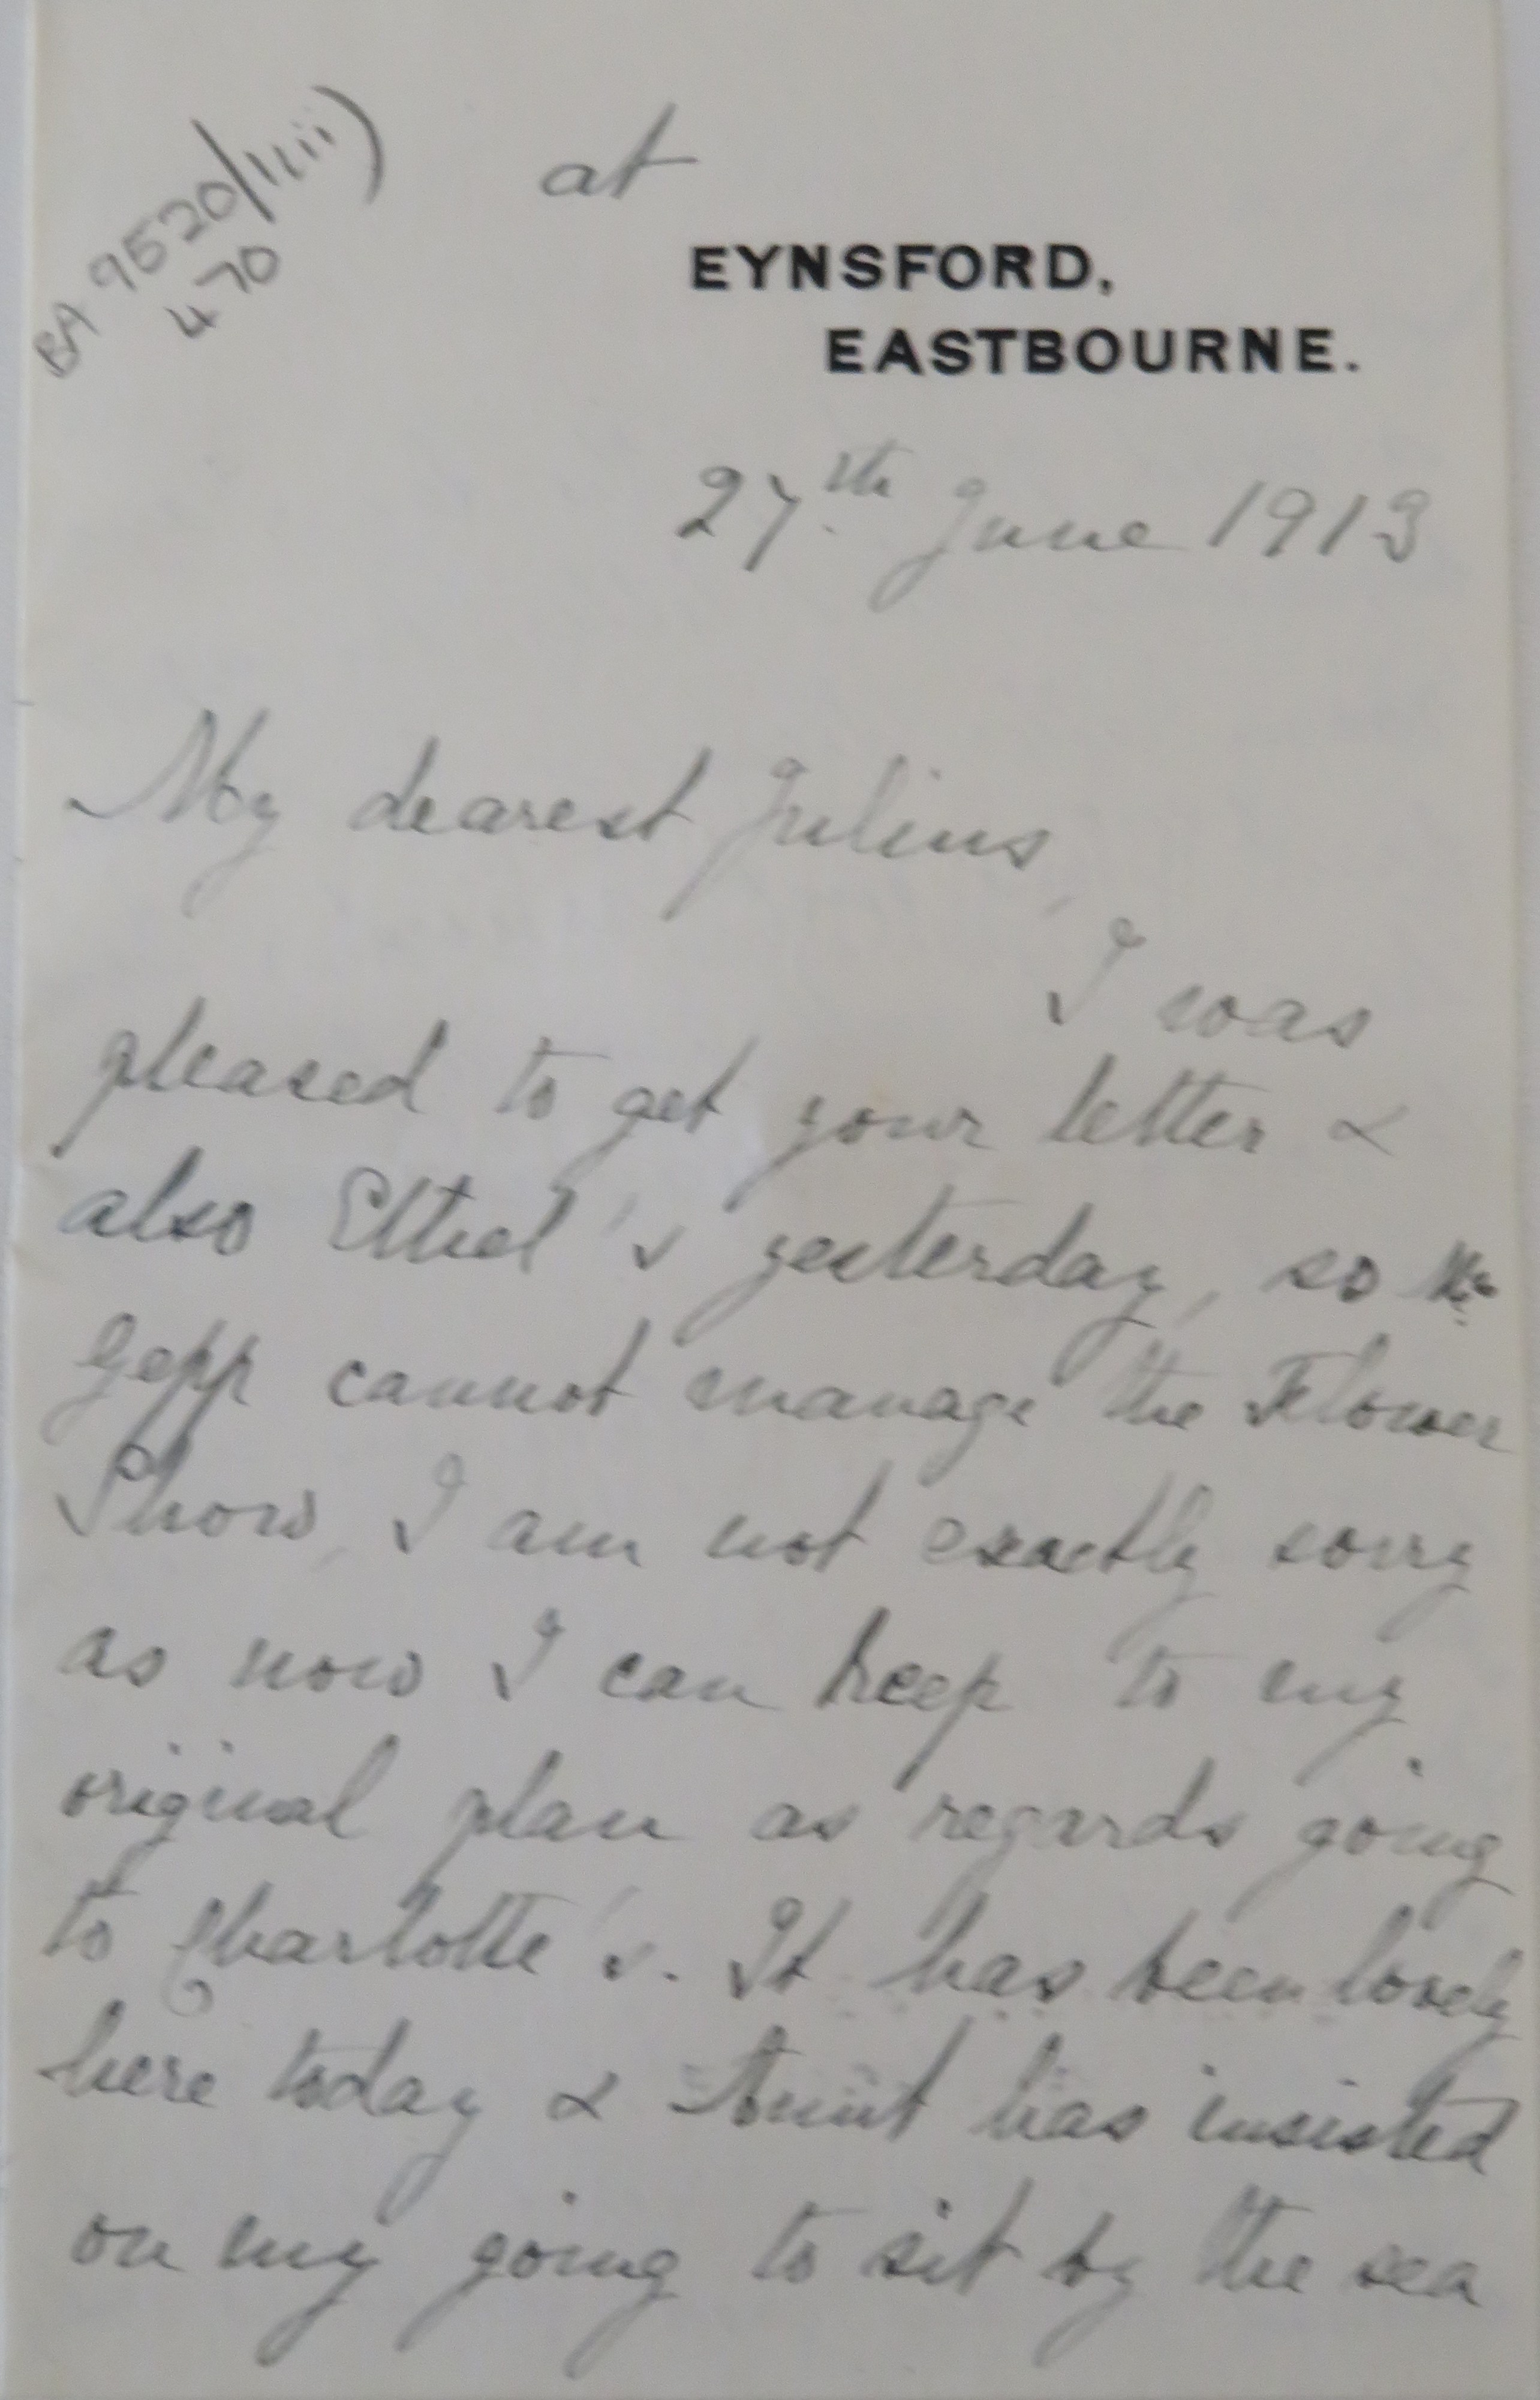 BA 9520/1(iii)
470
at
EYNSFORD,
EASTBOURNE.
27th June 1913
My dearest Julius,
I was
pleased to get your letter &
also Ethel's yesterday, so Mr
Gepp cannot manage the Flower
Show, I am not exactly sorry
as now I can keep to my
original plan as regards going
to Charlotte's. It has been lovely
here today & Aunt has insisted
on my going to sit by the sea